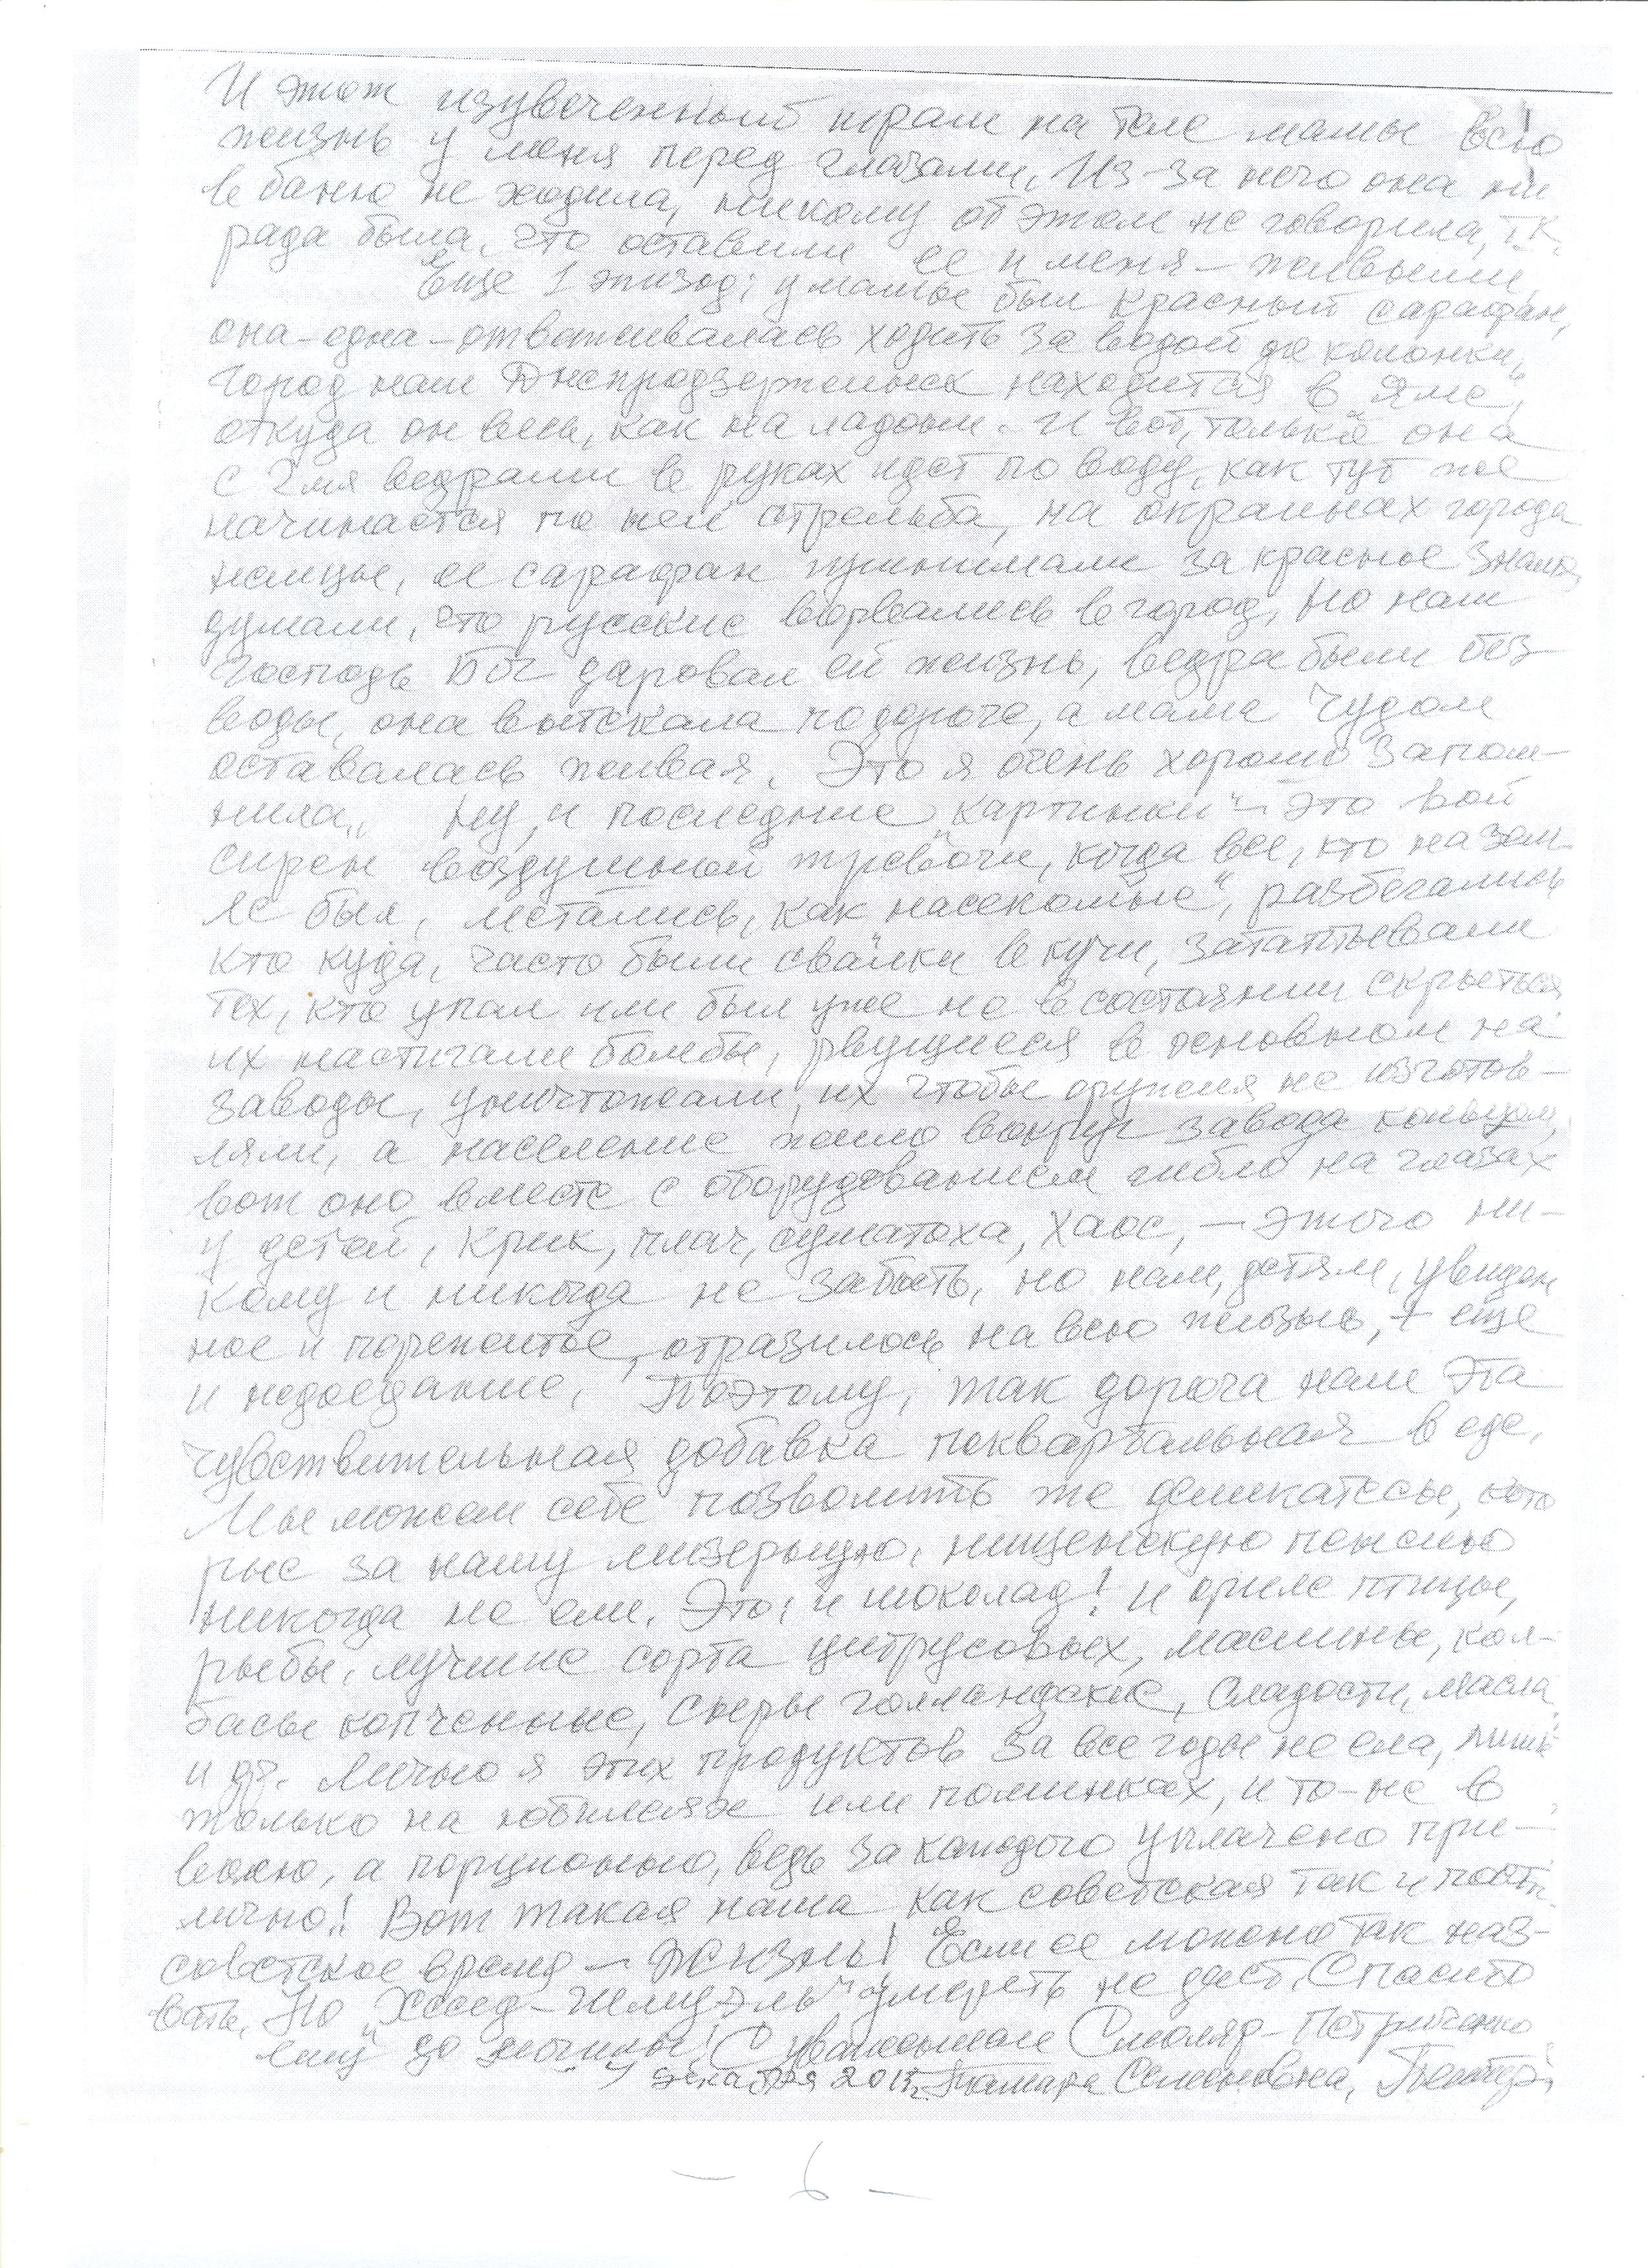 И этот изувеченный шрам на теле мамы всю
жизнь у меня перед глазами. Из-за него она ни
в баню не ходила, никому об этом не говорила, т.к.
рада была, что оставили ее и меня – живыми.
Еще 1 эпизод: у мамы был красный сарафан,
она – одна – отваживалась ходить за водой до колонки,
Город наш Днепродзержинск находится в „Яме“,
откуда он весь, как на ладони. И вот, только она
с 2мя ведрами в руках идет по воду, как тут же
начинается по ней стрельба, на окраинах города
немцы, ее сарафан принимали за красное знамя,
думали, что русские ворвались в город, но наш
Господь Бог даровал ей жизнь, ведра были без
воды, она вытекала по дороге, а мама чудом
оставалась живая. Это я очень хорошо запом-
нила. Ну, и последние „картинки“ – это вой
сирен воздушной тревоги, когда все, кто на зем-
ле был, метались, как „насекомые“, разбегались
кто куда, часто были свалки в кучи, затаптывали
тех, кто упал или был уже не в состоянии скрыться
их настигали бомбы, рвущиеся в основном на
заводы, уничтожали, их чтобы оружия не изготов-
ляли, а население жило вокруг завода кольцом,
вот оно вместе с оборудованием гибло на глазах
у детей, крик, плач, суматоха, хаос, – этого ни-
кому и никогда не забыть, но нам, детям, увиден
ное и пережитое, отразилось на всю жизнь, + еще
и недоедание. Поэтому, так дорога нам эта
чувствительная добавка поквартальная в еде,
Мы можем себе позволить же деликатесы, кото
рые за нашу мизерную, нищенскую пенсию
никогда не ели. Это: и шоколад! и филе птицы,
рыбы, лучшие сорта цитрусовых, маслины, кол-
басы копченные, сыры голландские, сладости, масла
и др. Лично я этих продуктов за все годы не ела, лишь
только на юбилеях или поминках, и то – не в
волю, а порционно, ведь за каждого уплачено при-
лично! Вот такая наша как советская так и пост
советское время – жизнь! Если ее можно так наз-
вать. Но „Хесед-Шмуэль“ умереть не даст. Спасибо
ему до могилы! С уважением Смоляр-Петриченко
4 декабря 2015г. Тамара Семеновна,
– 6 –